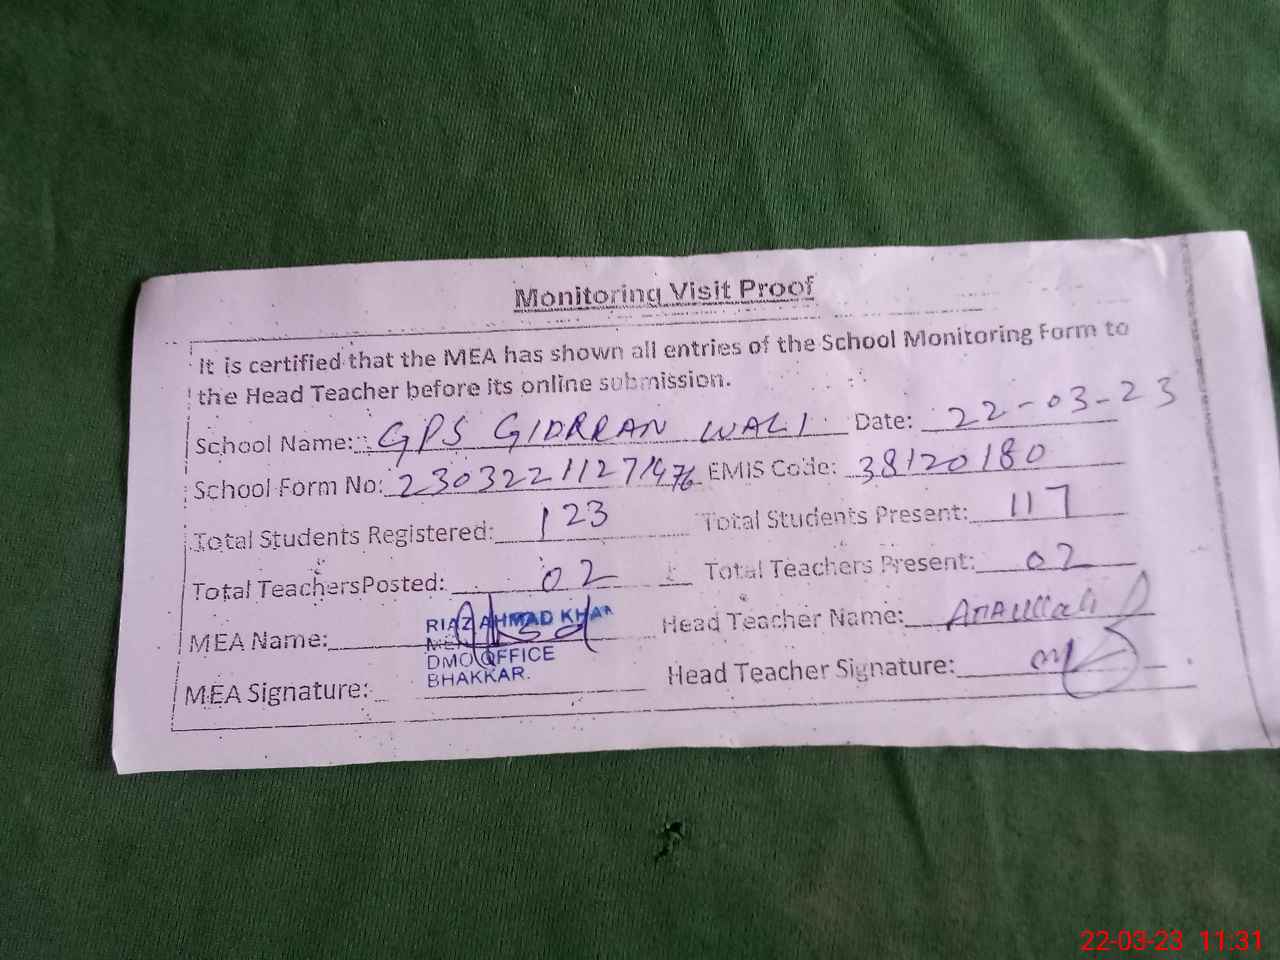 Monitoring Visit Proof
It is certified that the MEA has shown all entries of the School Monitoring Form to
the Head Teacher before its online submission.
School Name: GPS GIDRRAN WALI Date: 22-03-23
School Form No: 230322112719476 EMIS Code: 38120180
Total Students Registered: 123 Total Students Present: 117
Total TeachersPosted: 02 Total Teachers Present: 02
MEA Name: RIAZ AHMAD KHAN Head Teacher Name:
MEA
DMO OFFICE
BHAKKAR.
MEA Signature: Head Teacher Signature:
22-03-23 11:31